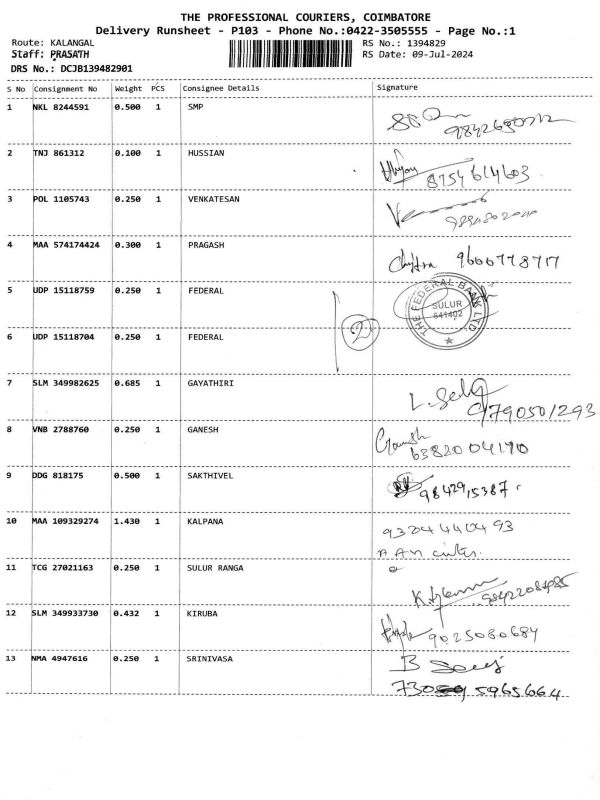 THE PROFESSIONAL COURIERS, COIMBATORE
Delivery Runsheet - P103 - Phone No.:0422-3505555 - Page No.:1
Route: KALANGAL
RS No.: 1394829
Staff: PRASATH
RS Date: 09-Jul-2024
DRS No.: DCJB139482901
S No Consignment No Weight PCS Consignee Details Signature
1 NKL 8244591 0.500 1 SMP
2 TNJ 861312 0.100 1 HUSSIAN
8754614603
3 POL 1105743 0.250 1 VENKATESAN
4 MAA 574174424 0.300 1 PRAGASH
9600778717
5 UDP 15118759 0.250 1 FEDERAL
THE FEDERAL BANK LTD.
SULUR
641402
2
6 UDP 15118704 0.250 1 FEDERAL
7 SLM 349982625 0.685 1 GAYATHIRI
9790501293
8 VNB 2788760 0.250 1 GANESH
Ganesh
6382004190
9 DDG 818175 0.500 1 SAKTHIVEL
9842915387
10 MAA 109329274 1.430 1 KALPANA
9324440493
11 TCG 27021163 0.250 1 SULUR RANGA
12 SLM 349933730 0.432 1 KIRUBA
9025080684
13 NMA 4947616 0.250 1 SRINIVASA
B
5965664